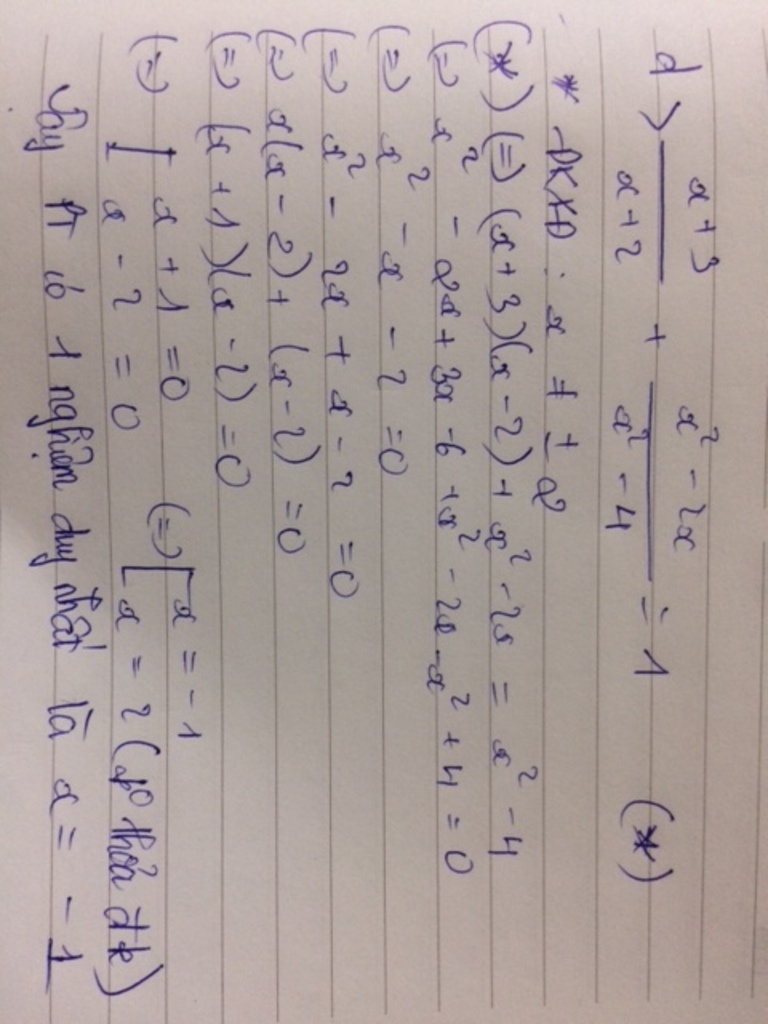 d> \frac{x+3}{x+2} + \frac{x^2-2x}{x^2-4} = 1 (*)
* ĐKXĐ: x ≠ ± 2
(*) (=) (x+3)(x-2) + x^2 - 2x = x^2 - 4
(=) x^2 - 2x + 3x - 6 + x^2 - 2x - x^2 + 4 = 0
(=) x^2 - x - 2 = 0
(=) x^2 - 2x + x - 2 = 0
(=) x(x-2) + (x-2) = 0
(=) (x+1)(x-2) = 0
(=) [ x+1 = 0 (=) [ x = -1
x - 2 = 0 x = 2 (ko thỏa đk)
Vậy PT có 1 nghiệm duy nhất là x = -1